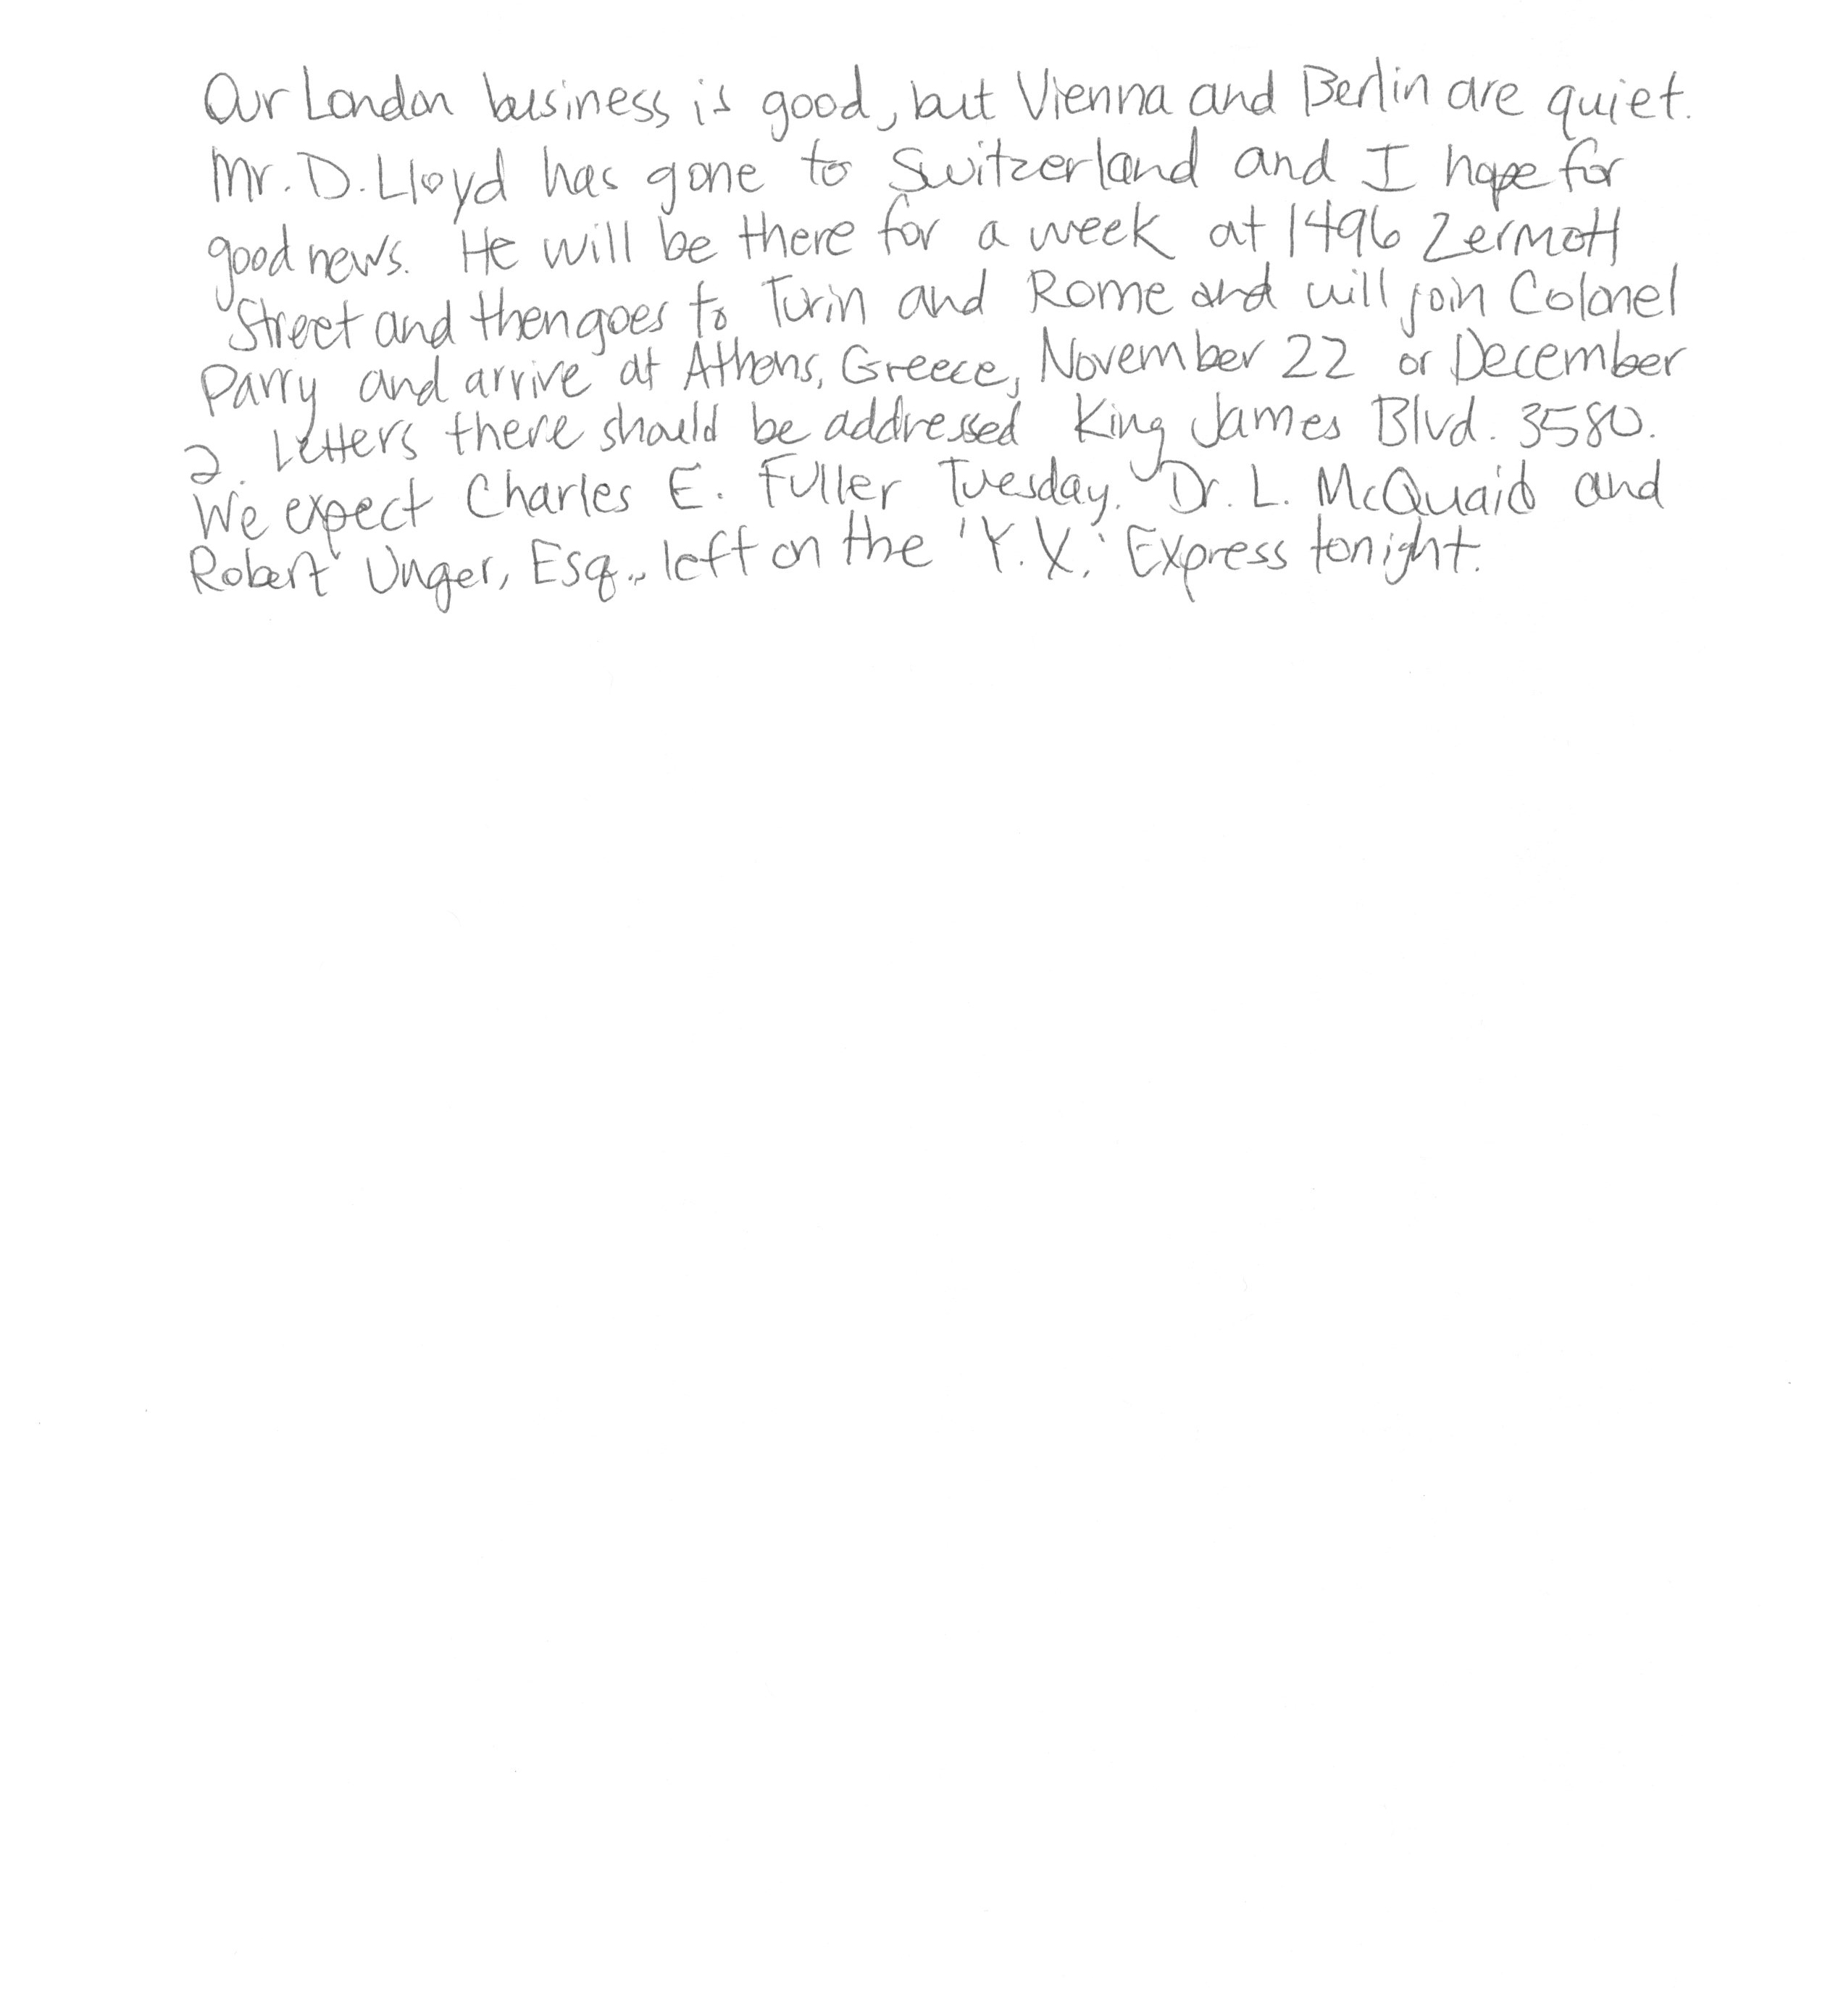 Our London business is good, but Vienna and Berlin are quiet.
Mr. D. Lloyd has gone to Switzerland and I hope for
good news. He will be there for a week at 1496 Zermott
Street and then goes to Turin and Rome and will join Colonel
Parry and arrive at Athens, Greece, November 22 or December
2. Letters there should be addressed King James Blvd. 3580.
We expect Charles E. Fuller Tuesday. Dr. L. McQuaid and
Robert Unger, Esq., left on the 'Y.X.' Express tonight.